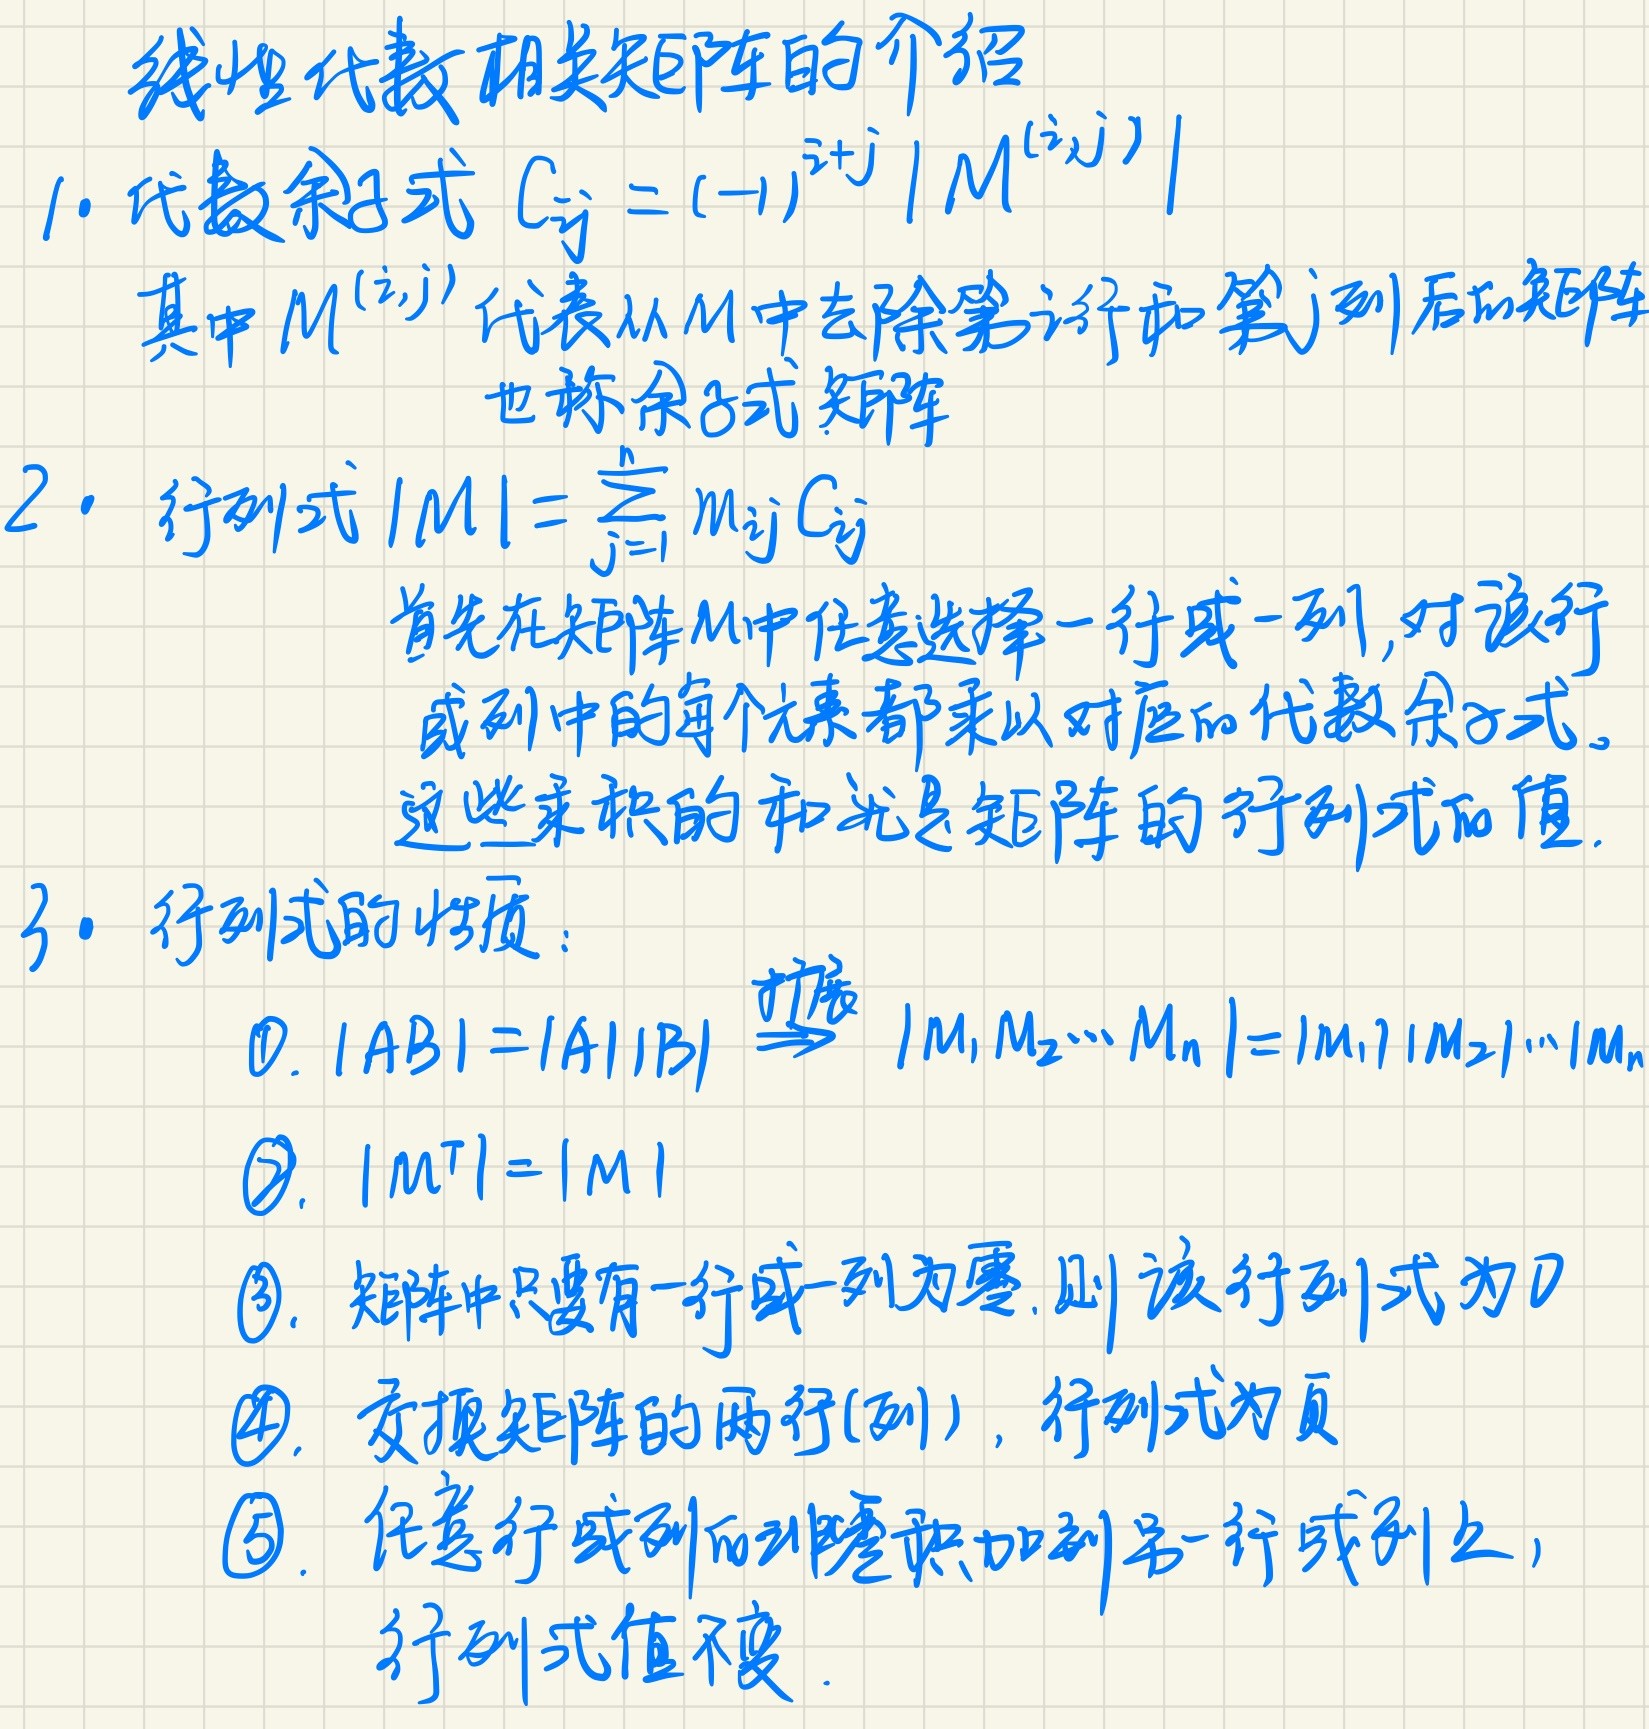 线性代数相关矩阵的介绍
1. 代数余子式 C_{ij} = (-1)^{i+j} |M^{(i,j)}|
其中 M^{(i,j)} 代表从M中去除第i行和第j列后的矩阵
也称余子式矩阵
2. 行列式 |M| = \sum_{j=1}^{n} m_{ij} C_{ij}
首先在矩阵M中任意选择一行或一列,对该行
或列中的每个元素都乘以对应的代数余子式。
这些乘积的和就是矩阵的行列式的值.
3. 行列式的性质:
①. |AB| = |A||B| 扩展⇒ |M_1 M_2 ⋯ M_n| = |M_1||M_2|⋯|M_n
②. |M^T| = |M|
③. 矩阵中只要有一行或一列为零.则该行列式为0
④. 交换矩阵的两行(列),行列式为负
⑤. 任意行或列的非零积加到另一行或列上,
行列式值不变.